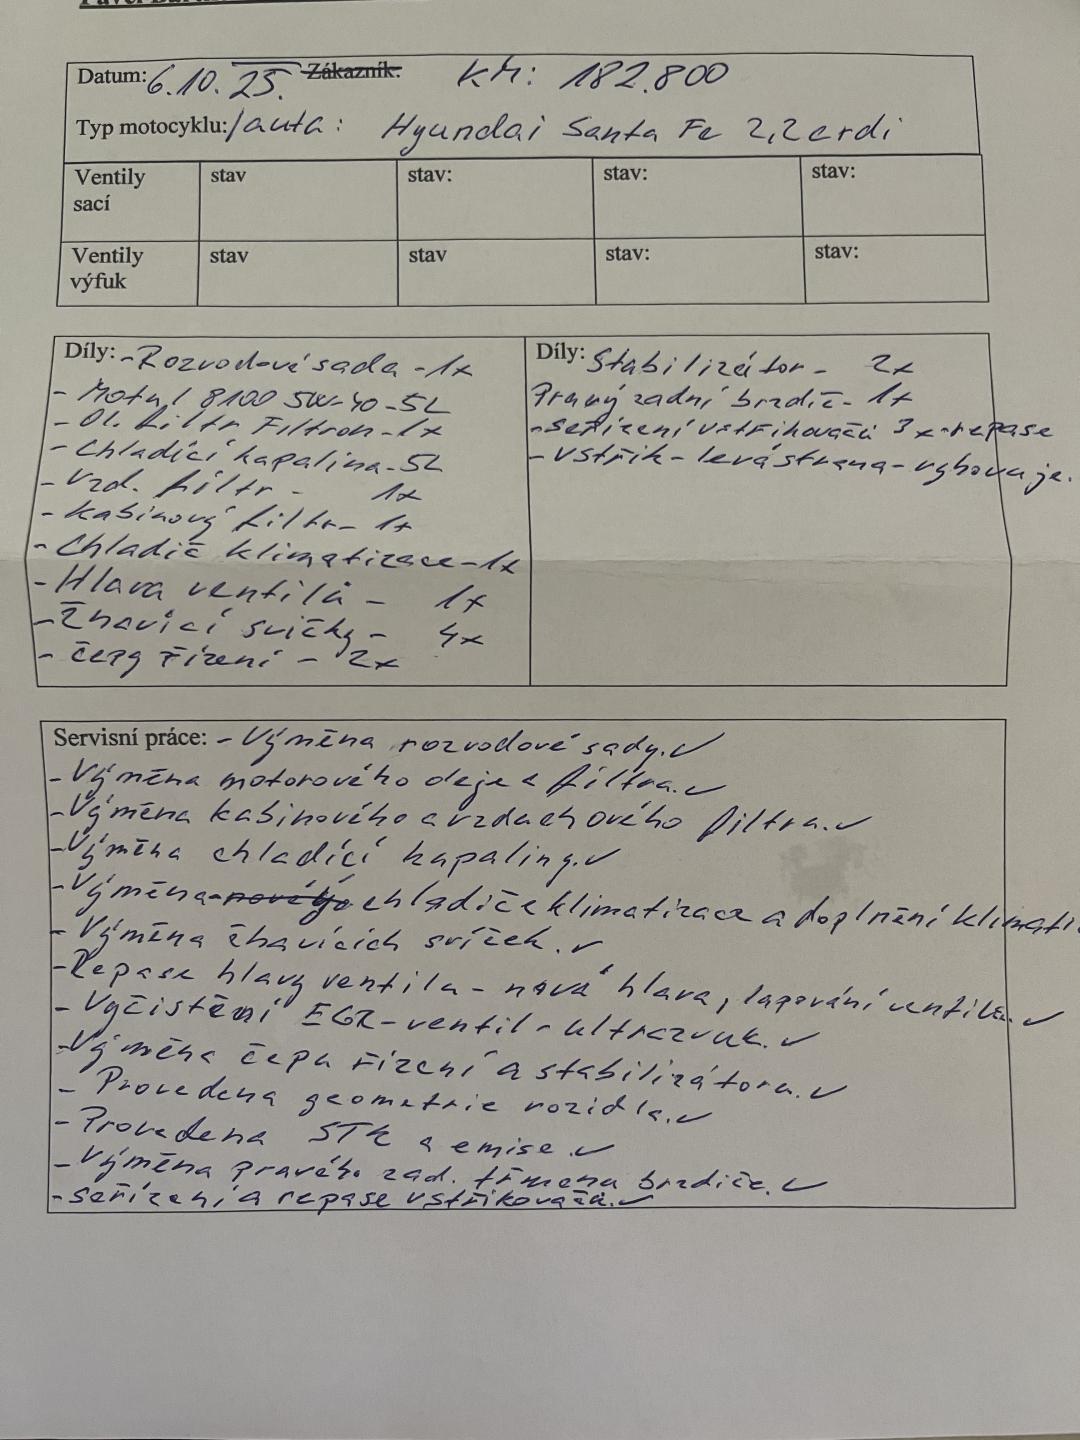 Datum: 6.10.25. Zákazník: KM: 182.800
Typ motocyklu:/auta: Hyundai Santa Fe 2,2 crdi
Ventily sací stav stav: stav: stav:
Ventily výfuk stav stav stav: stav:
Díly: - Rozvodová sada - 1x
- Motul 8100 5W-40 - 5L
- Ol. filtr Filtron - 1x
- Chladící kapalina - 5L
- Vzd. filtr - 1x
- Kabinový filtr - 1x
- Chladič klimatizace - 1x
- Hlava ventilů - 1x
- Žhavicí svíčky - 4x
- čepy řízení - 2x
Díly: Stabilizátor - 2x
Pravý zadní brzdič - 1x
- seřízení vstřikovačů 3x - repase
- vstřik - levá strana - vyhovuje.
Servisní práce: - Výměna rozvodové sady. ✓
- Výměna motorového oleje a filtra. ✓
- Výměna kabinového a vzduchového filtra. ✓
- Výměna chladící kapaliny. ✓
- Výměna nového chladiče klimatizace a doplnění klimati
- Výměna žhavících svíček. ✓
- Repase hlavy ventilu - nová hlava, lapování ventilů. ✓
- Vyčistění EGR-ventil - ultrazvuk. ✓
- Výměna čepu řízení a stabilizátoru. ✓
- Provedena geometrie vozidla. ✓
- Provedena STK a emise. ✓
- Výměna pravého zad. třmenu brzdiče. ✓
- seřízení a repase vstřikovačů. ✓